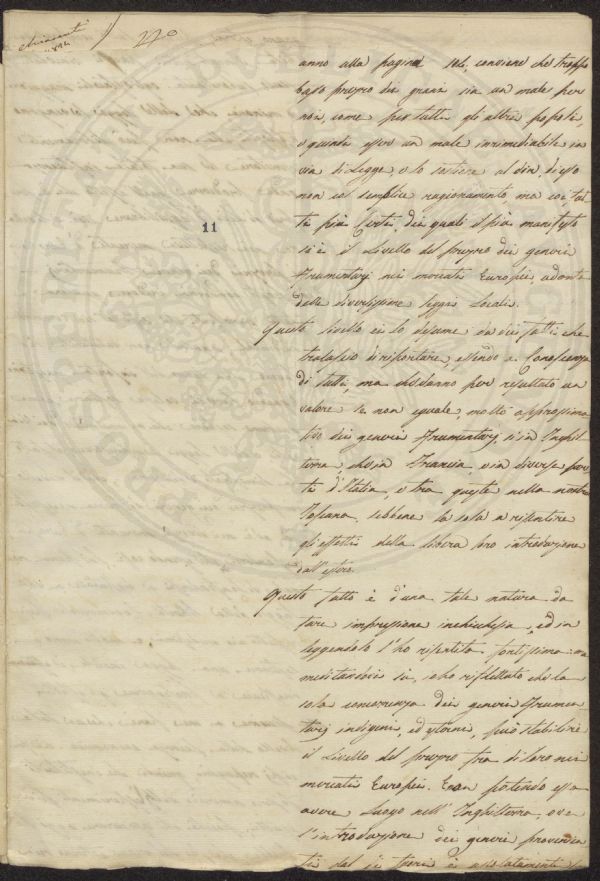 Chiarenti
1824
220
11
anno alla pagina 101, conviene che troppo
basso prezzo dei grani sia un male per
noi, come per tutti gli altri popoli,
e quanto esser un male inrimediabile in
via di Legge, e lo sostiene al dir di esso
non col semplice ragionamento, ma coi fat
ti più certi, dei quali il più manifesto
si è il Livello del prezzo dei generi
frumentarj nei mercati Europei, adonta
delle diversissime leggi Locali.
Questo livello ei lo desume da dei fatti che
tralascio di riportare, essendo a Conoscenza
di tutti, ma che danno per resultato un
valore se non eguale, molto approssima
tivo dei generi frumentarj sia in Inghil
terra, che in Francia, e in diverse par
ti d'Italia, e tra queste nella nostra
Toscana, sebbene la sola a risentire
gli effetti della libera loro introduzione
dall'estero.
Questo fatto è d'una tale natura da
fare impressione in chichessia, ed in
leggendolo l'ho risentita fortissima: ma
meditandovi su, ho riflettuto che la
sola concorrenza dei generi frumen
tarj indigeni, ed esterni, può stabilire
il Livello del prezzo fra di loro nei
mercati Europei. E non potendo essa
avere luogo nell'Inghilterra, ove
l'introduzione dei generi provenien
ti dal di fuori è assolutamente